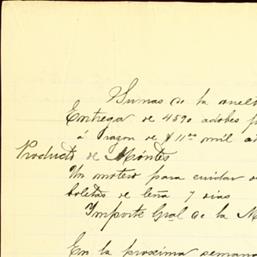 Sumas de la
Entrega de 4590 adobes
á razon de $11.00 mil
Producto de Montes
Un motero para cuidar
boletas de leña 7 dias
Importe Gral de la
En la proxima semana